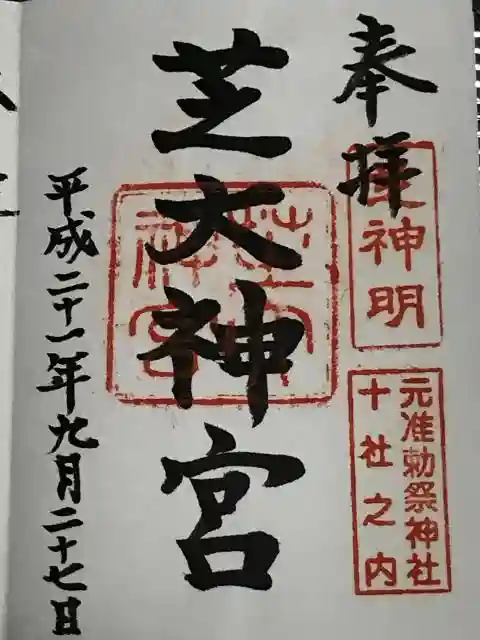 奉拝
神明
元准勅祭神社
十社之内
芝大神宮
芝大神宮
平成二十一年九月二十七日